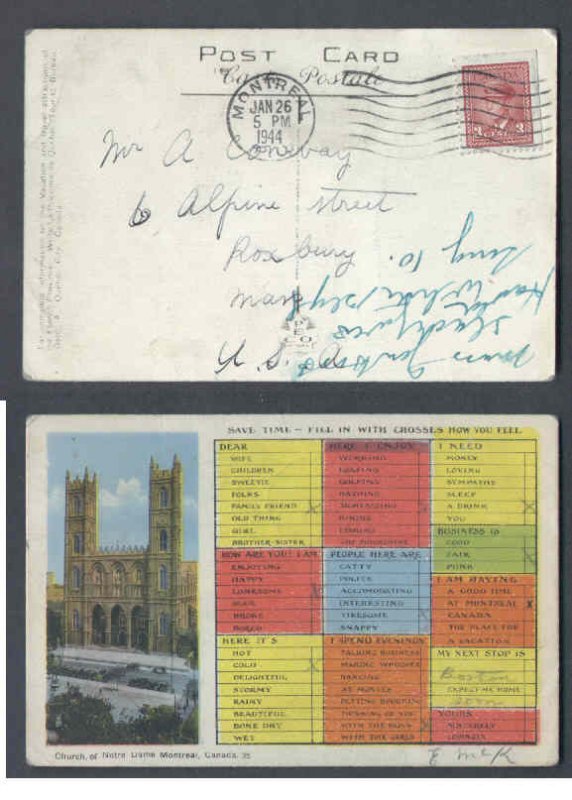 POST CARD
Carte Postale
MONTREAL
JAN 26
5 PM
1944
3 CENTS 3
Mr A Conway
6 Alpine street
Roxbury
Mass
U. S. A.
PECO
SAVE TIME — FILL IN WITH CROSSES HOW YOU FEEL
DEAR
WIFE
CHILDREN
SWEETIE
FOLKS
FAMILY FRIEND X
OLD THING
GIRL
BROTHER-SISTER
HOW ARE YOU? I AM
ENJOYING
HAPPY
LONESOME X
BROKE
HERE IT'S
HOT
COLD X
DELIGHTFUL
STORMY
RAINY
BEAUTIFUL
BONE DRY
WET
HERE I ENJOY
WORKING
LOAFING
GOLFING
BATHING
HIKING
PEOPLE HERE ARE
CATTY
POLITE
ACCOMODATING
INTERESTING
TIRESOME
SNAPPY
I SPEND EVENINGS
TALKING BUSINESS
MAKING WHOOPEE
DANCING
AT MOVIES
THINKING OF YOU
WITH THE BOYS
WITH THE GIRLS
I NEED
MONEY
LOVING
SYMPATHY
SLEEP
A DRINK X
YOU
BUSINESS IS
GOOD
FAIR X
PUNK
I AM HAVING
A GOOD TIME
AT MONTREAL X
CANADA
THE PLACE FOR
A VACATION
MY NEXT STOP IS
Boston
EXPECT ME HOME
soon
YOURS
SINCERELY
LOVINGLY
E McK
Church of Notre Dame Montreal, Canada. 25